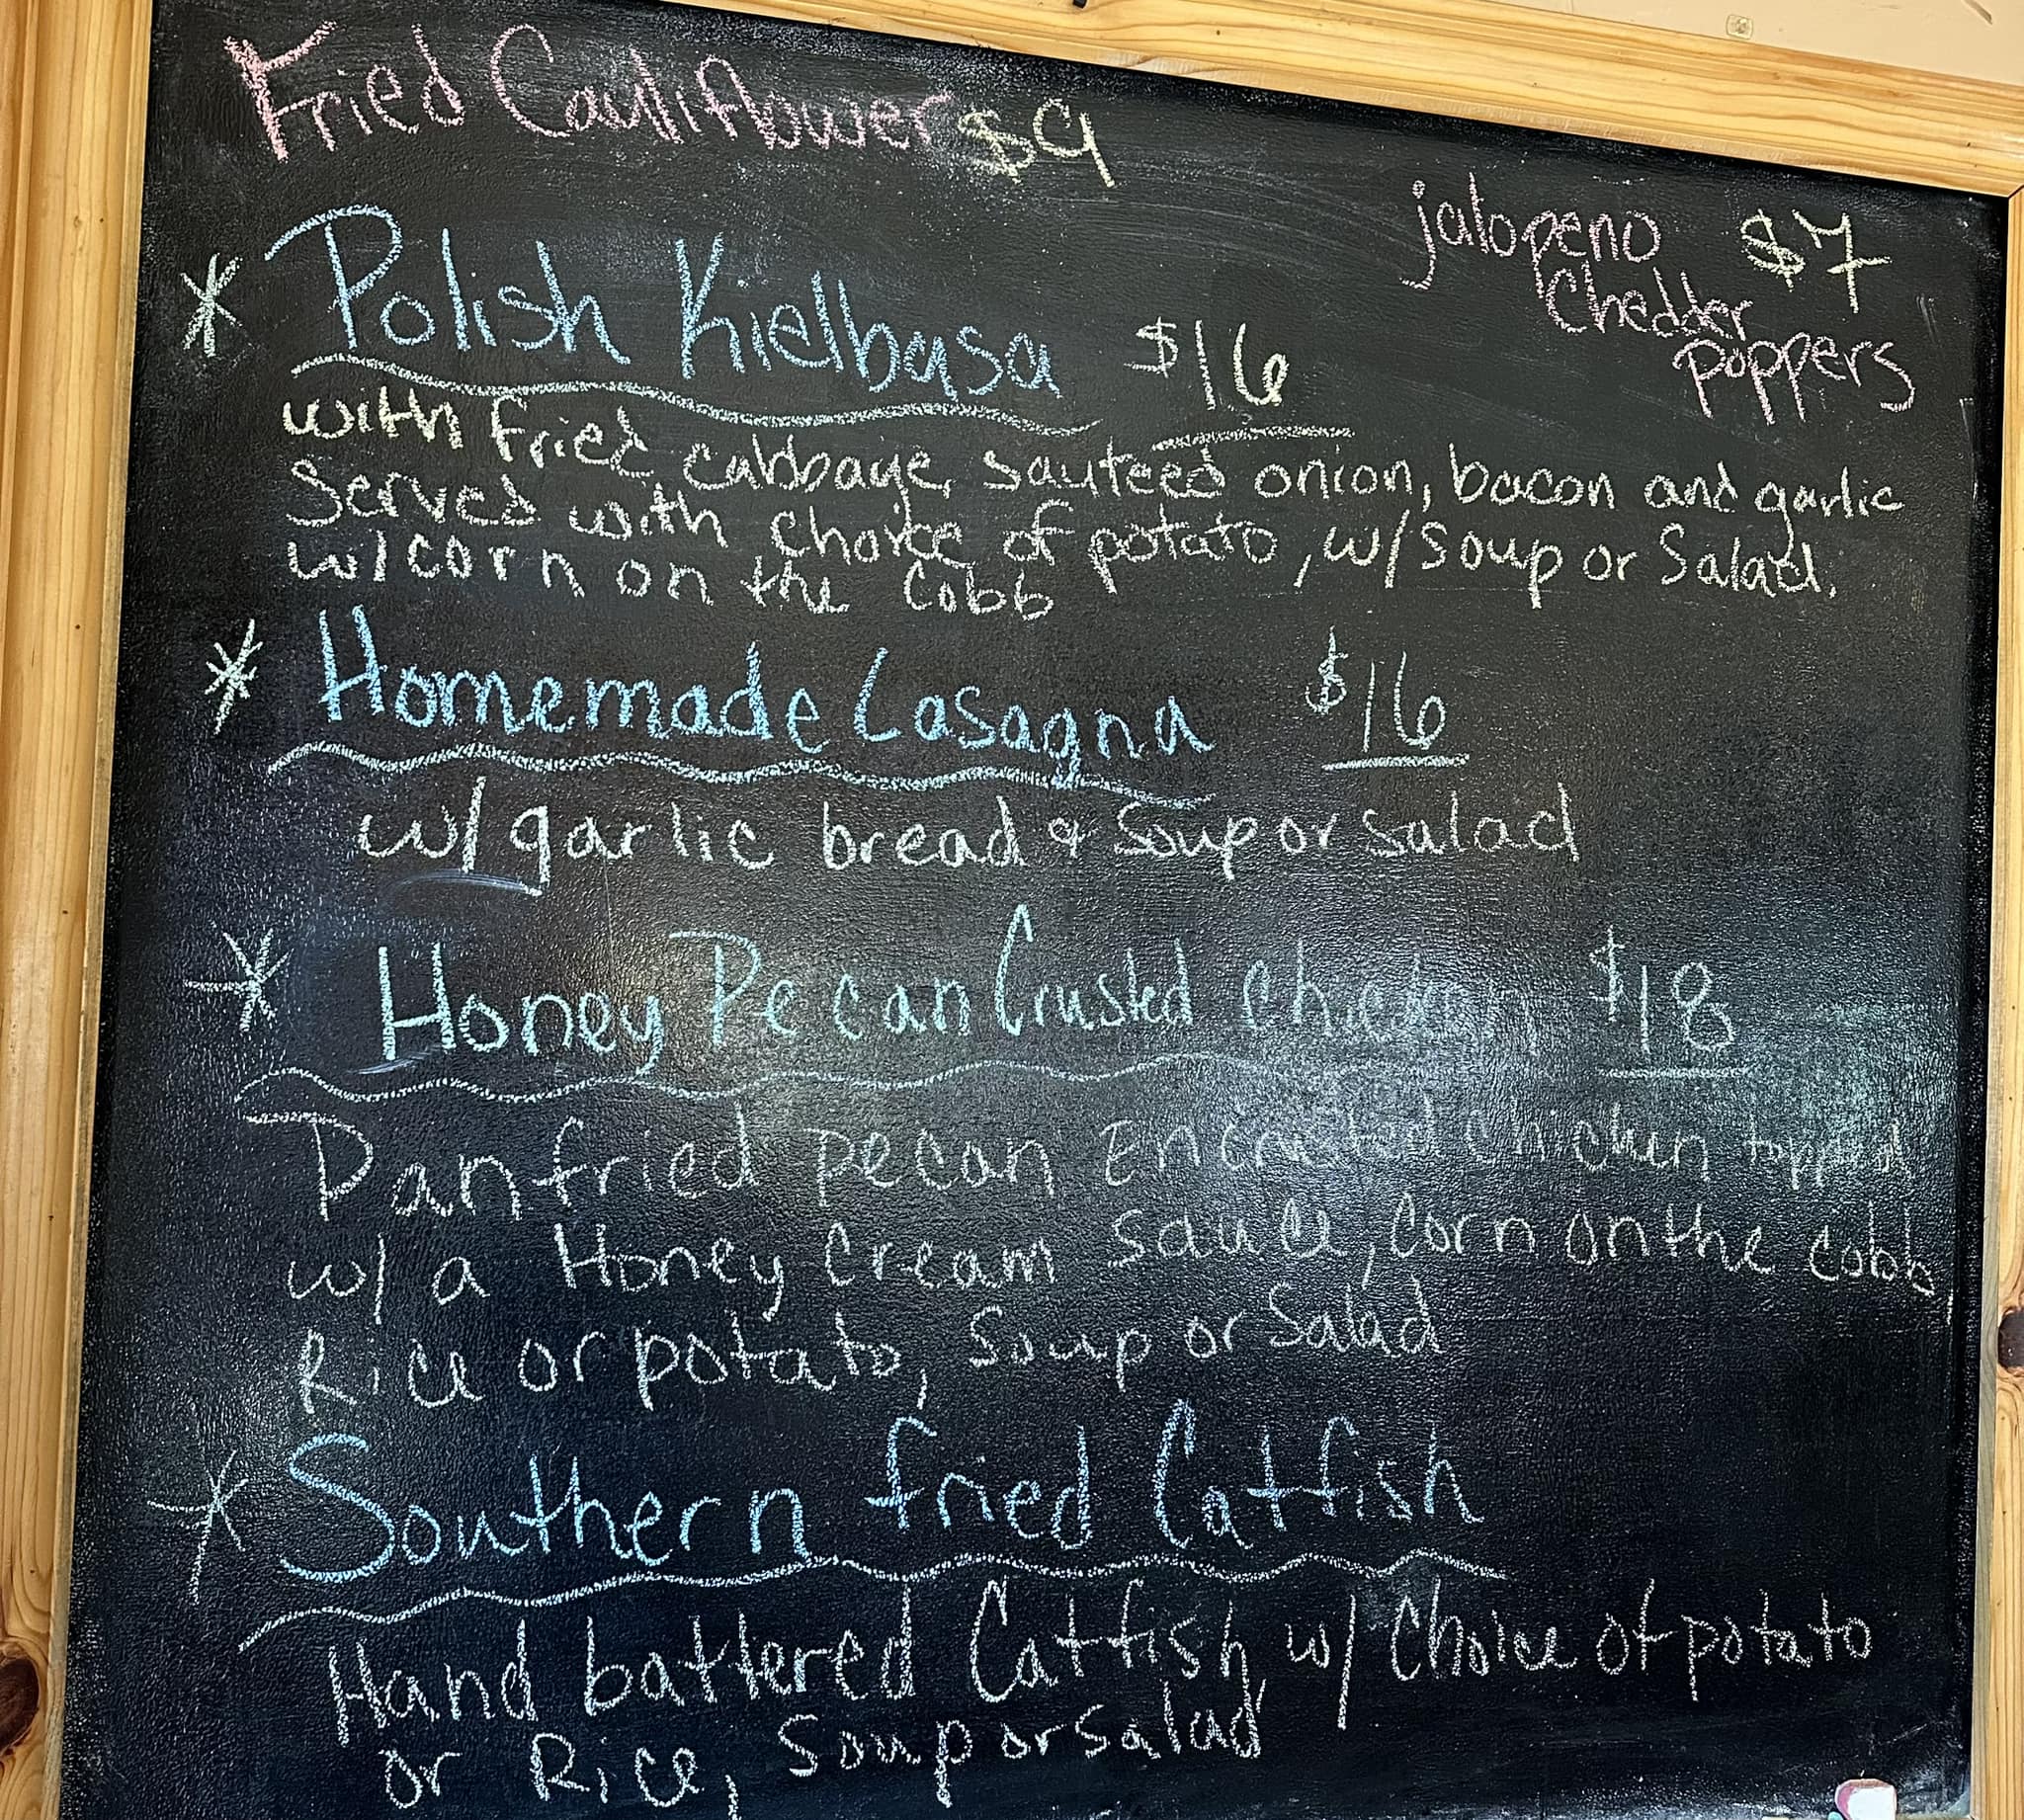 Fried Cauliflower $9
jalopeno $7
Chedder
poppers
* Polish Kielbasa $16
with fried cabbage, sauteed onion, bacon and garlic
Served with choice of potato, w/ Soup or Salad.
w/ corn on the Cobb
* Homemade Lasagna $16
w/ garlic bread & Soup or salad
* Honey Pecan Crusted Chicken $18
Pan fried pecan Encrusted chicken topped
w/ a Honey Cream sauce, Corn on the cobb,
Rice or potato, Soup or Salad
* Southern fried Catfish
Hand battered Catfish w/ Choice of potato
or Rice, Soup or Salad